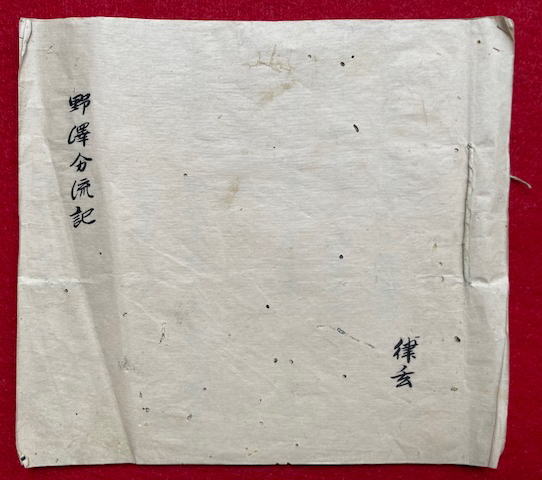 野澤分流記
律玄